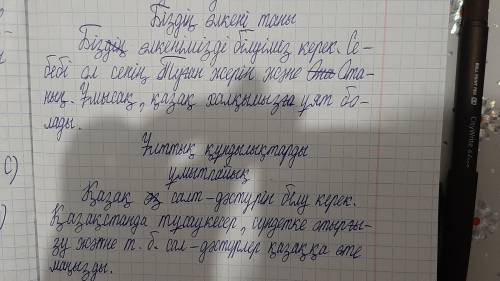 Біздің өлкені таны
Біздің өлкенімізді білуіміз керек. Се-
бебі ол сенің Туған жерің және Ота-
ның. Ұмысақ, қазақ халқымызға ұят бо-
лады.
Ұлттық құндылықтарды
ұмытпайық
Қазақ салт-дәстүрін білу керек.
Қазақстанда тұсаукесер, сүндетке отырғы-
зу және т. б. сал-дәстүрлер қазаққа өте
маңызды.
С)
)
CityWrite